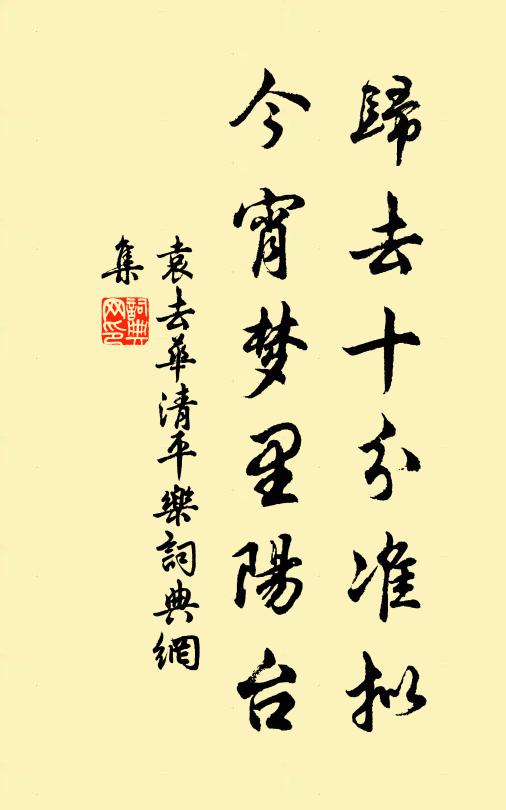 歸去十分准拟
今宵梦里陽台
袁去華清平樂詞典網
集
詞典網印